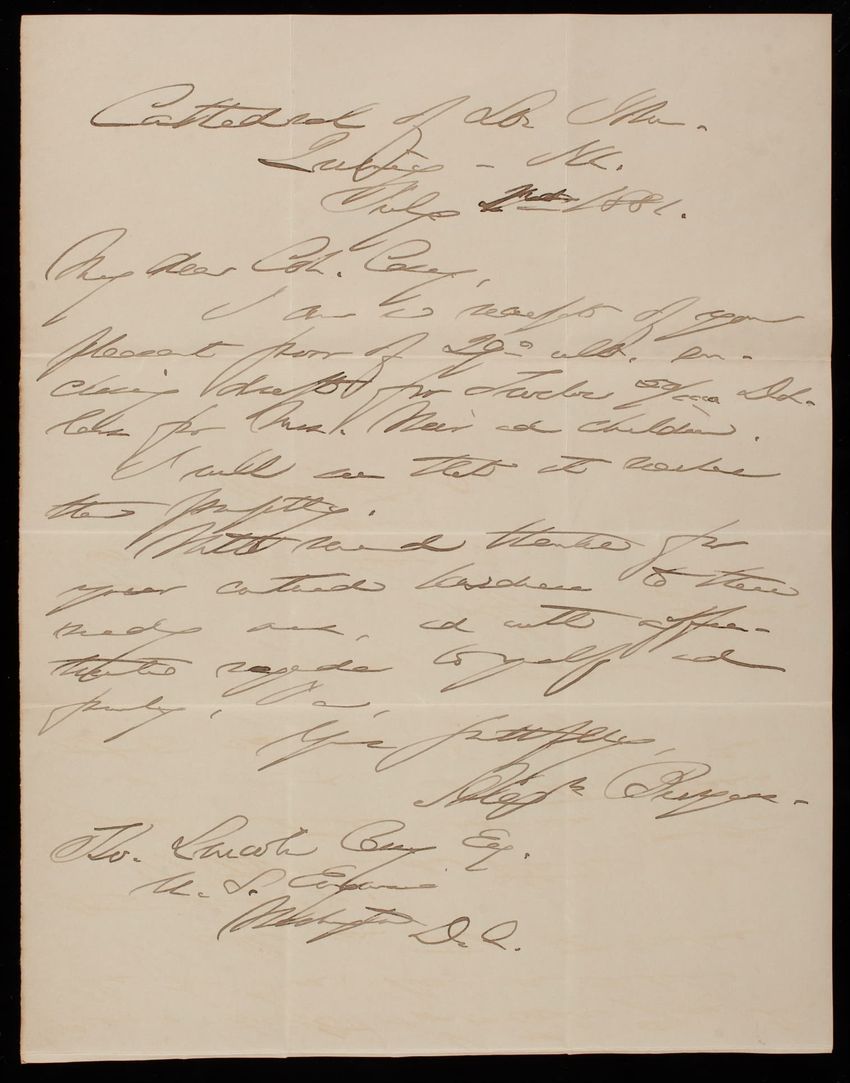 Cathedral of St. John.
Quincy - Ill.
July 2nd 1881.
My dear Col. Casey,
I am in receipt of your
pleasant favor of 29th ult. en-
closing draft for Twelve 50/100 Dol-
lars for Mrs. Weir and children.
I will see that it reaches
them promptly.
With renewed thanks for
your continued kindness to these
needy ones, and with affec-
tionate regards to yourself and
family, I am,
Yours faithfully,
Alex Burgess.
Tho. Lincoln Casey Esq.
U. S. Engineers
Washington D. C.